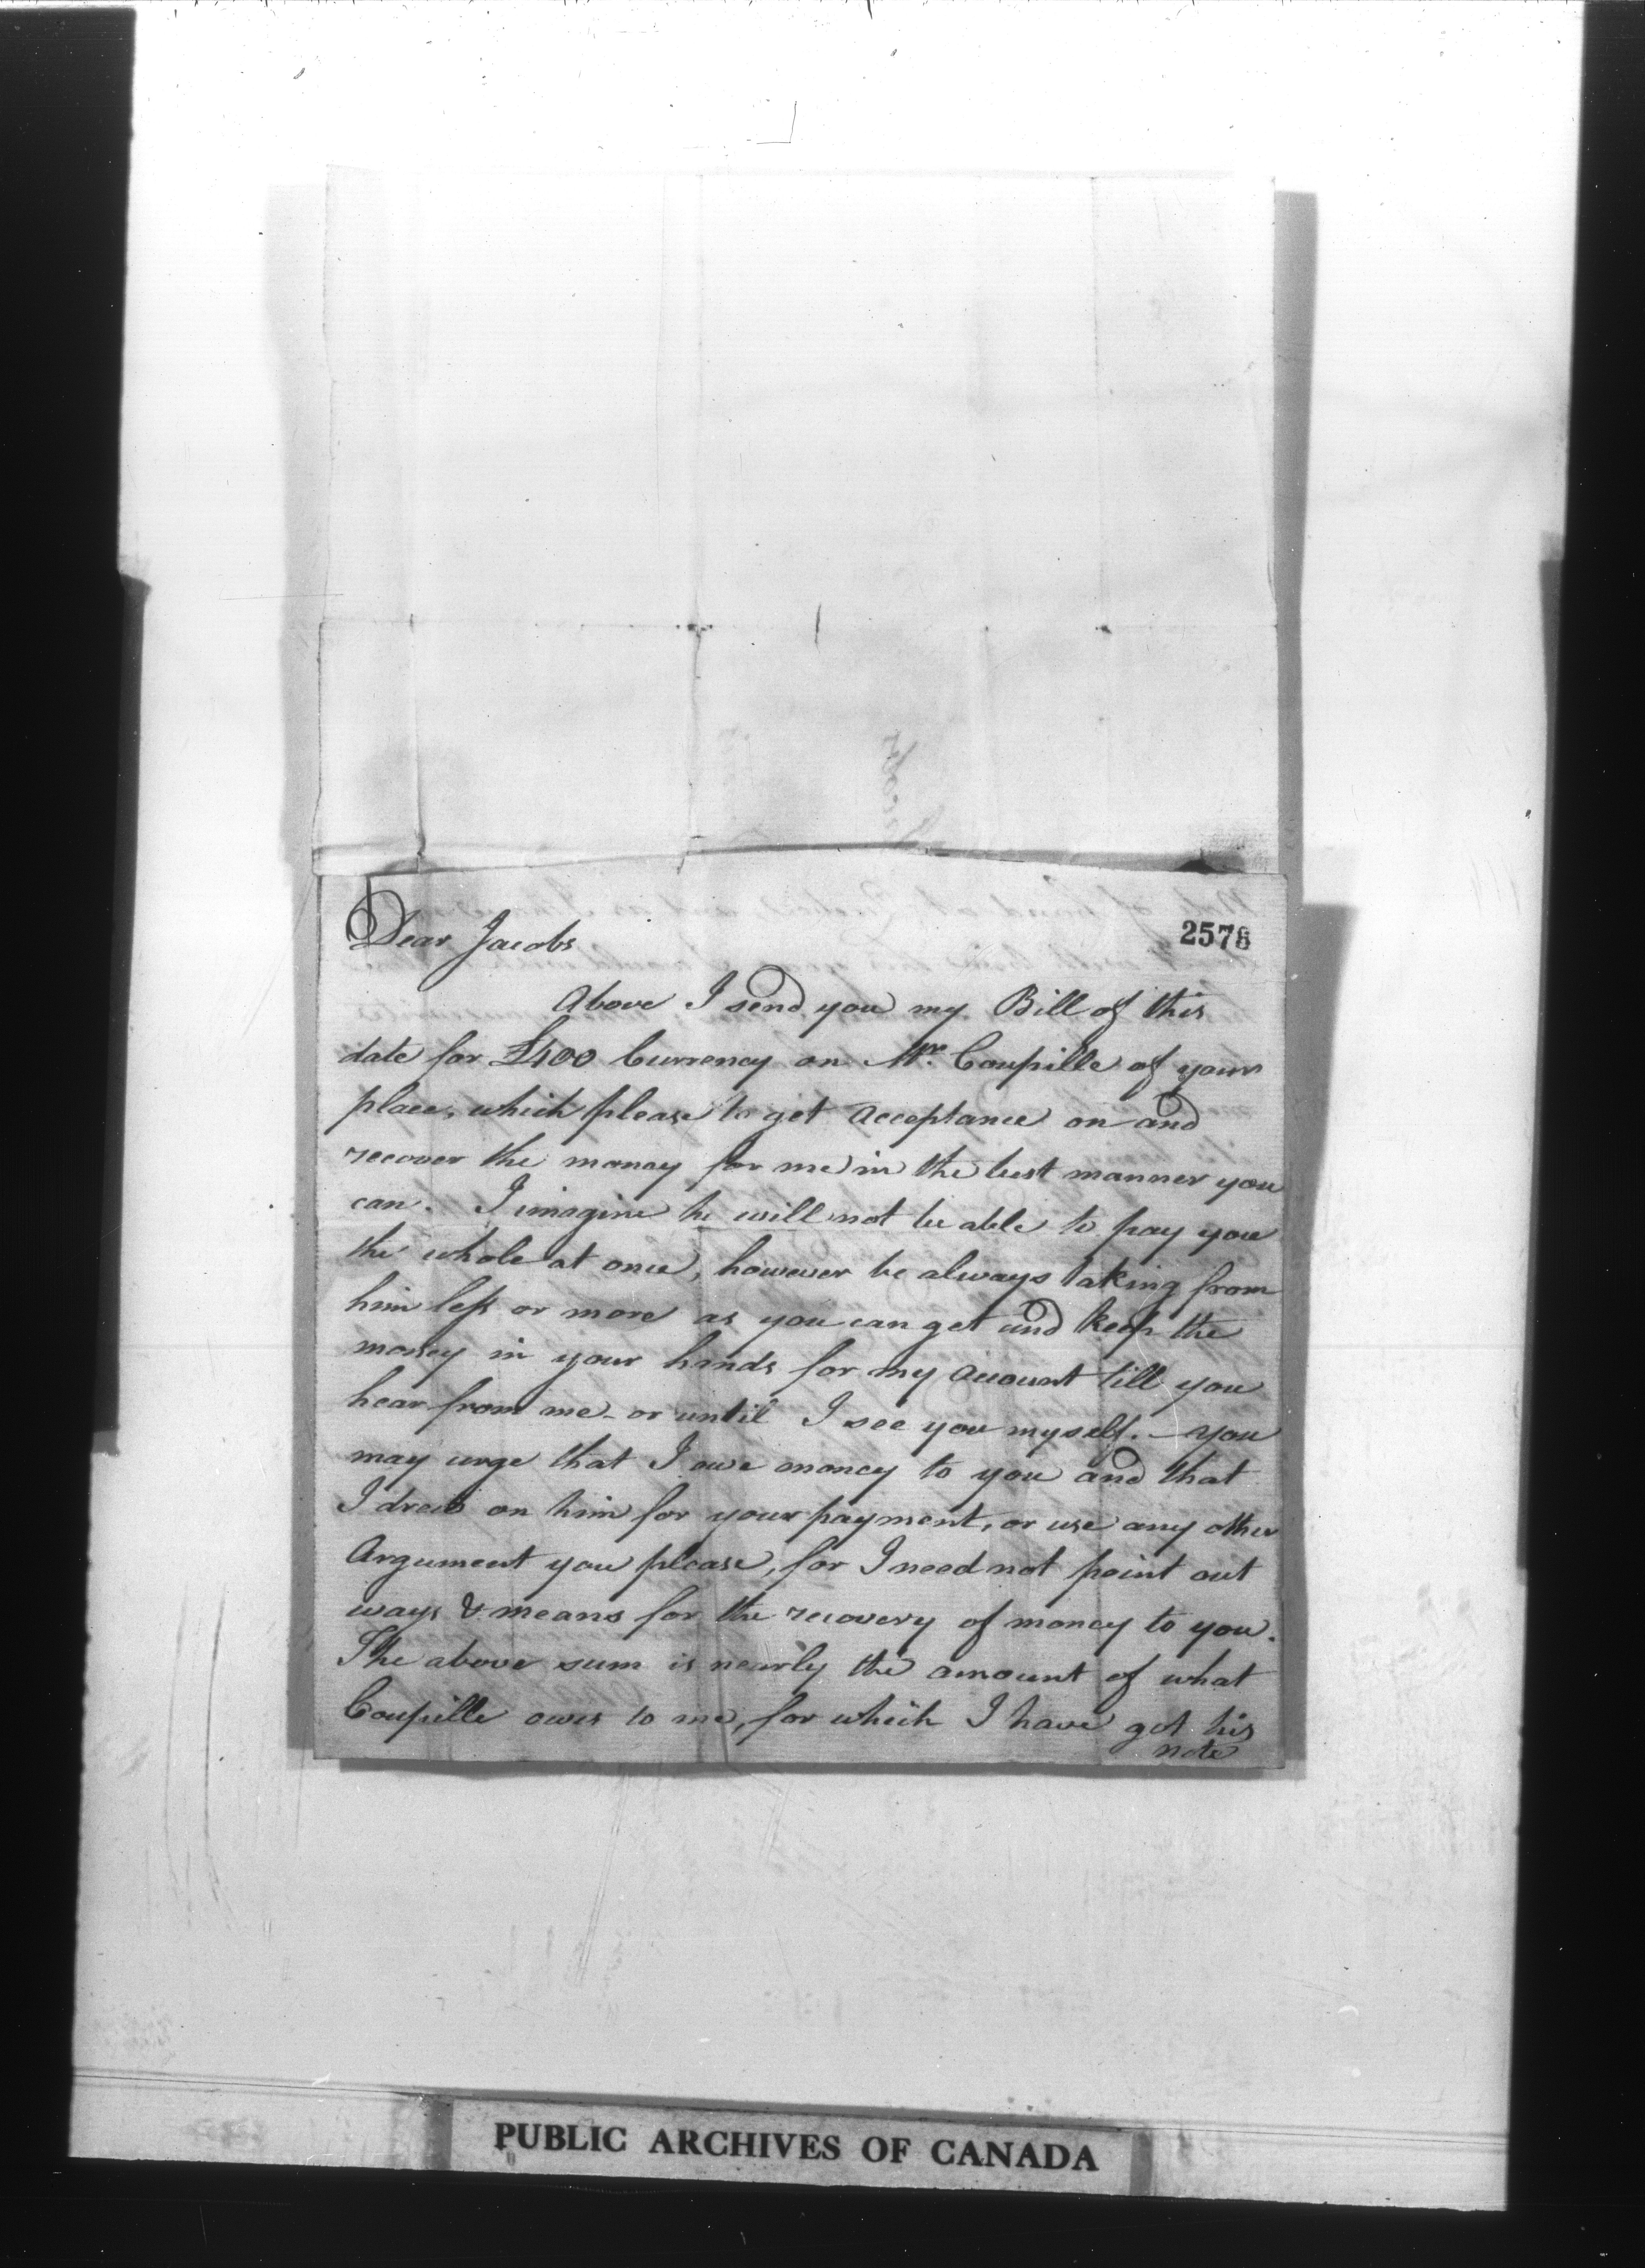 2578
Dear Jacobs
Above I send you my Bill of this
date for £400 Currency on Mr. Coupille of your
place, which please to get acceptance on and
recover the money for me in the best manner you
can. I imagine he will not be able to pay you
the whole at once, however be always taking from
him less or more as you can get and keep the
money in your hands for my account till you
hear from me - or until I see you myself. - you
may urge that I owe money to you and that
I drew on him for your payment, or use any other
Argument you please, for I need not point out
ways & means for the recovery of money to you.
The above sum is nearly the amount of what
Coupille owes to me, for which I have got his
note
PUBLIC ARCHIVES OF CANADA